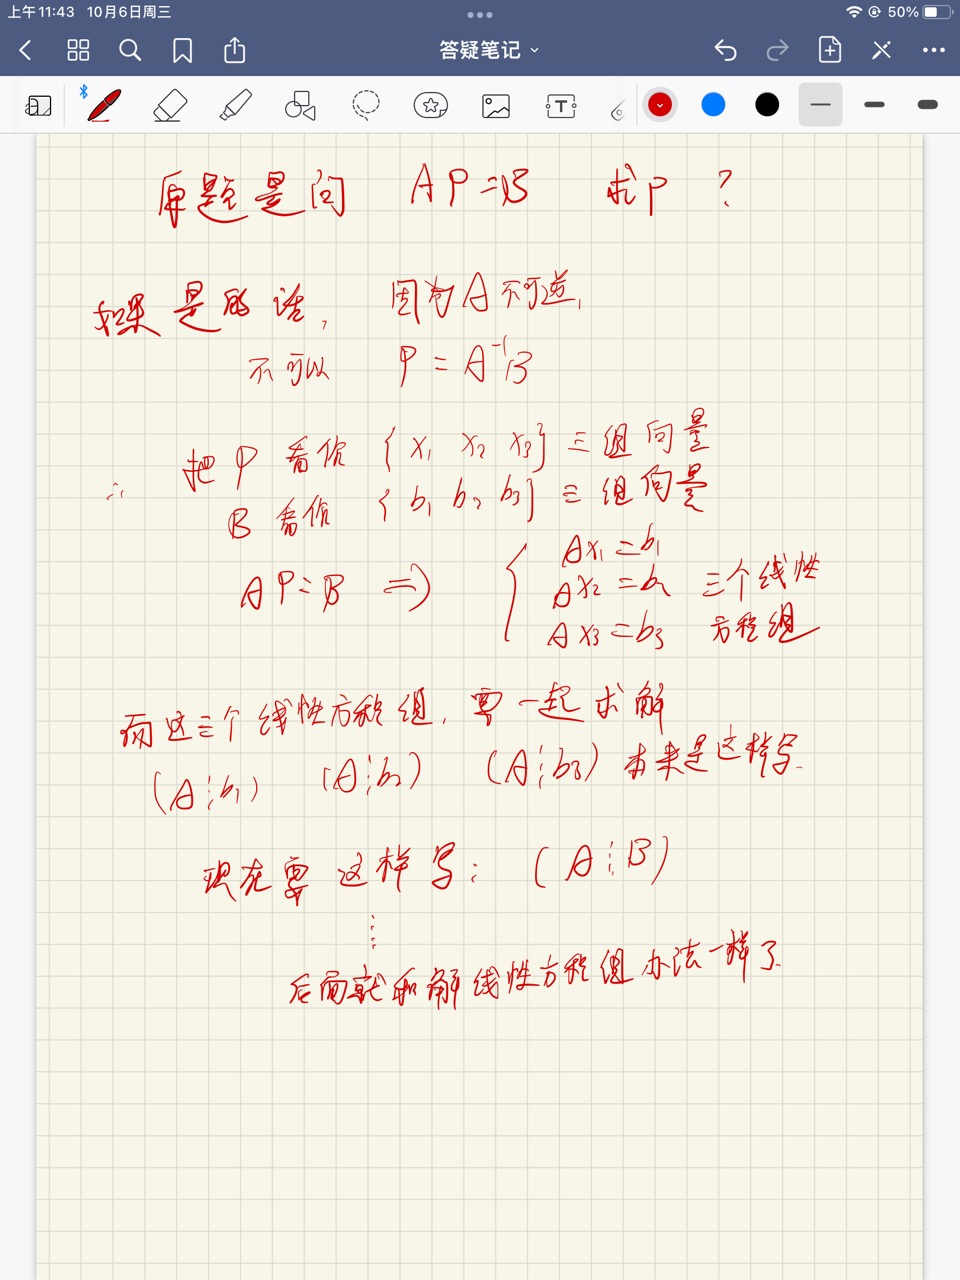 上午11:43 10月6日周三
50%
答疑笔记
原题是问 AP=B 求P?
如果是的话, 因为A不可逆,
不可以 P=A⁻¹B
∴ 把P看作 {x₁ x₂ x₃} 三组向量
B看作 {b₁ b₂ b₃} 三组向量
AP=B ⇒ { Ax₁=b₁
Ax₂=b₂ 三个线性
Ax₃=b₃ 方程组
而这三个线性方程组,要一起求解
(A⋮b₁) (A⋮b₂) (A⋮b₃) 本来是这样写.
现在要这样写: (A⋮B)
⋮
后面就和解线性方程组办法一样了